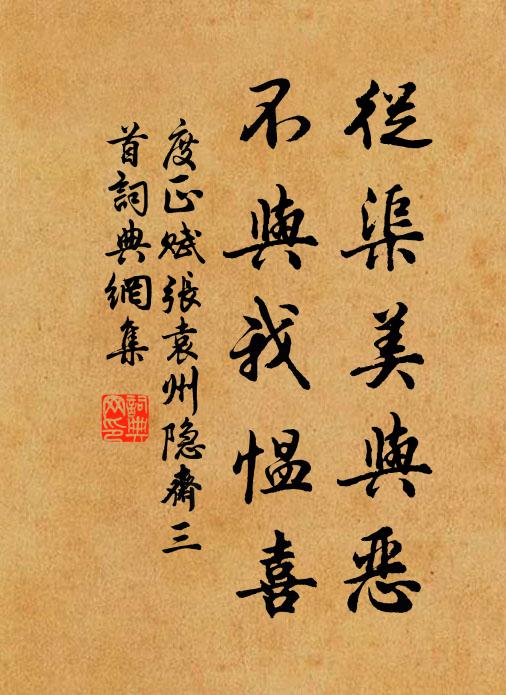 從渠美與惡
不與我愠喜
度正賦張袁州隐齋三
首詞典網集
詞典
网印